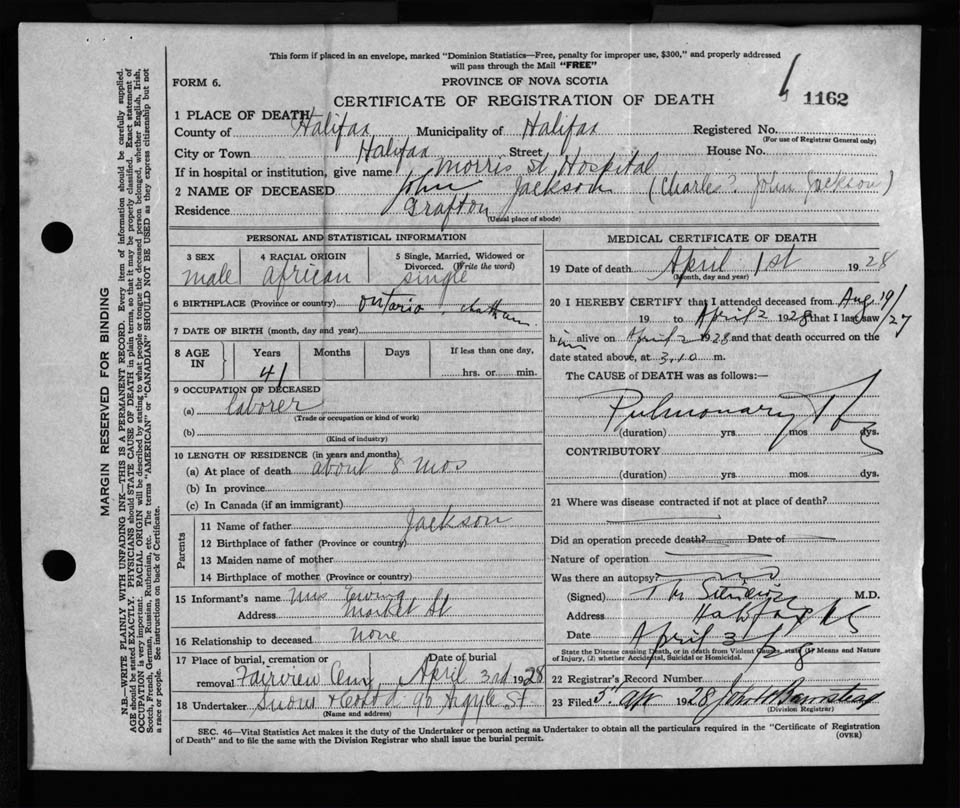 This form if placed in an envelope, marked "Dominion Statistics—Free, penalty for improper use, $300," and properly addressed
will pass through the Mail "FREE"
FORM 6.
PROVINCE OF NOVA SCOTIA
CERTIFICATE OF REGISTRATION OF DEATH
1162
1 PLACE OF DEATH
County of Halifax Municipality of Halifax Registered No.
(For use of Registrar General only)
City or Town Halifax Street House No.
If in hospital or institution, give name Morris St Hospital
2 NAME OF DECEASED John Jackson (Charles? John Jackson)
Residence Grafton
(Usual place of abode)
PERSONAL AND STATISTICAL INFORMATION
3 SEX 4 RACIAL ORIGIN 5 Single, Married, Widowed or
Divorced. (Write the word)
male african single
6 BIRTHPLACE (Province or country) Ontario, Chatham
7 DATE OF BIRTH (month, day and year)
8 AGE IN Years Months Days If less than one day,
41 hrs. or min.
9 OCCUPATION OF DECEASED
(a) laborer
(Trade or occupation or kind of work)
(b)
(Kind of industry)
10 LENGTH OF RESIDENCE (in years and months)
(a) At place of death about 8 mos
(b) In province
(c) In Canada (if an immigrant)
Parents
11 Name of father Jackson
12 Birthplace of father (Province or country)
13 Maiden name of mother
14 Birthplace of mother (Province or country)
15 Informant's name Mrs Ewing
Address Market St
16 Relationship to deceased none
17 Place of burial, cremation or Date of burial
removal Fairview Cem, April 3rd 1928
18 Undertaker Snow & Co Ltd 90 Argyle St
(Name and address)
MEDICAL CERTIFICATE OF DEATH
19 Date of death April 1st 1928
(Month, day and year)
20 I HEREBY CERTIFY that I attended deceased from Aug 19/27
19 to April 2 1928 that I last saw
him alive on April 2 1928 and that death occurred on the
date stated above, at 3.10 m.
The CAUSE of DEATH was as follows:—
Pulmonary
(duration) yrs. mos dys.
CONTRIBUTORY
(duration) yrs. mos dys.
21 Where was disease contracted if not at place of death?
Did an operation precede death? Date of
Nature of operation
Was there an autopsy? no
(Signed) M.D.
Address Halifax NS
Date April 3/28
State the Disease causing Death, or in death from Violent Causes, state (1) Means and Nature
of Injury, (2) whether Accidental, Suicidal or Homicidal.
22 Registrar's Record Number
23 Filed 3" Apr 1928
(Division Registrar)
SEC. 46—Vital Statistics Act makes it the duty of the Undertaker or person acting as Undertaker to obtain all the particulars required in the "Certificate of Registration
of Death" and to file the same with the Division Registrar who shall issue the burial permit.
(OVER)
MARGIN RESERVED FOR BINDING
N.B.—WRITE PLAINLY WITH UNFADING INK—THIS IS A PERMANENT RECORD. Every item of information should be carefully supplied.
AGE should be stated EXACTLY. PHYSICIANS should STATE CAUSE OF DEATH in plain terms, so that it may be properly classified. Exact statement of
OCCUPATION is very important. RACIAL ORIGIN will be described by stating to what people or tongue the deceased person belonged, whether English, Irish,
Scotch, French, German, Russian, Ruthenian, etc. The terms "AMERICAN" or "CANADIAN" SHOULD NOT BE USED as they express citizenship but not
a race or people. See instructions on back of Certificate.